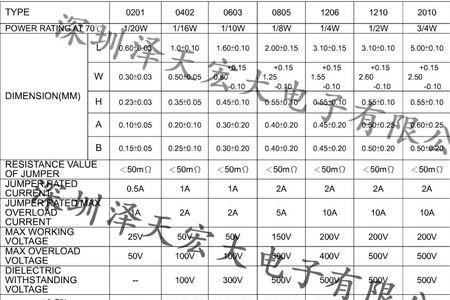 TYPE 0201 0402 0603 0805 1206 1210 2010
POWER RATING AT 70 1/20W 1/16W 1/10W 1/8W 1/4W 1/2W 3/4W
0.60±0.03 1.0±0.10 1.60±0.10 2.00±0.15 3.10±0.15 3.10±0.10 5.00±0.10
DIMENSION(MM)
W 0.30±0.03 0.50±0.05 0.80 +0.15 -0.10 1.25 +0.15 -0.10 1.55 +0.15 -0.10 2.60 +0.15 -0.10 2.50 +0.15 -0.10
H 0.23±0.03 0.35±0.05 0.45±0.10 0.55±0.10 0.55±0.10 0.55±0.10 0.55±0.10
A 0.10±0.05 0.20±0.10 0.30±0.20 0.40±0.20 0.45±0.20 0.50±0.25 0.60±0.25
B 0.15±0.05 0.25±0.10 0.30±0.20 0.40±0.20 0.45±0.20 0.50±0.20 0.50±0.20
RESISTANCE VALUE
OF JUMPER <50mΩ <50mΩ <50mΩ <50mΩ <50mΩ <50mΩ <50mΩ
JUMPER RATED
CURRENT 0.5A 1A 1A 2A 2A 2A 2A
JUMPER RATED MAX
OVERLOAD
CURRENT 1A 2A 2A 5A 10A 10A 10A
MAX WORKING
VOLTAGE 25V 50V 50V 150V 200V 200V 200V
MAX OVERLOAD
VOLTAGE 50V 100V 100V 300V 400V 500V 500V
DIELECTRIC
WITHSTANDING
VOLTAGE -- 100V 300V 500V 500V 500V 500V
深圳泽天宏大电子有限公
深圳泽天宏大电子有限公